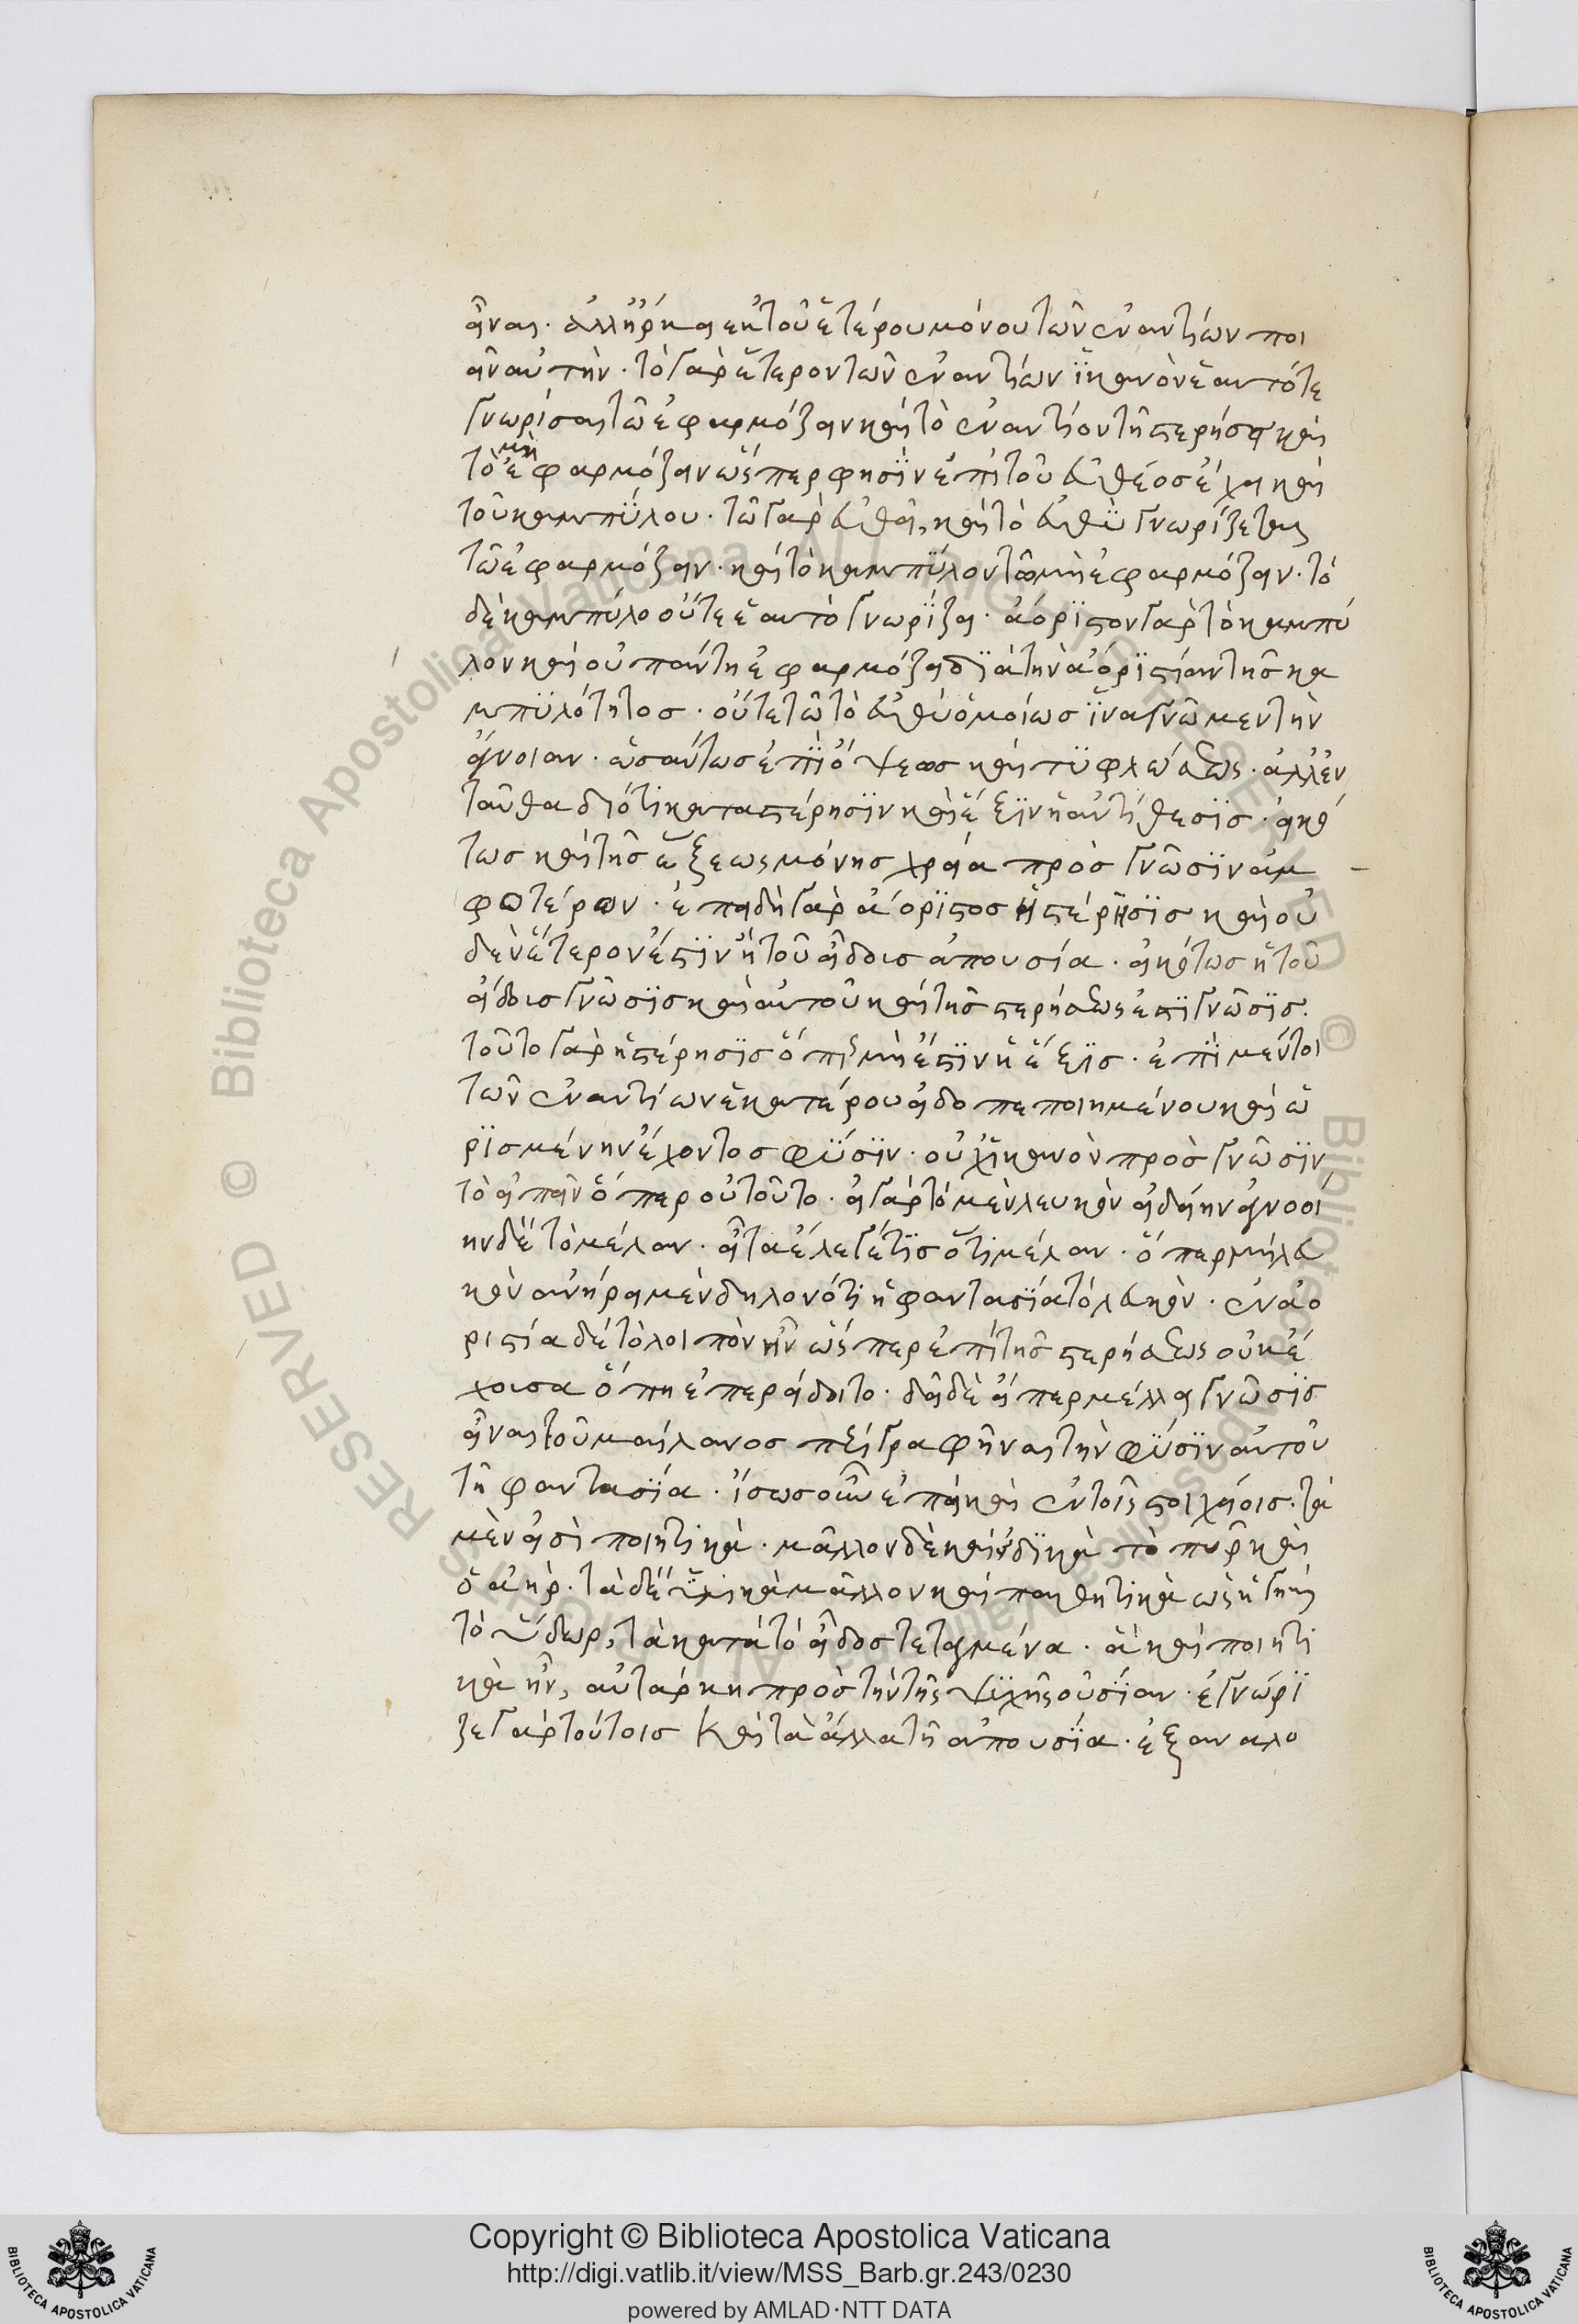 εἶναι· ἀλλ' ἤρκει ἐκ τοῦ ἑτέρου μόνου τῶν ἐναντίων ποι
εῖν αὐτὴν· τὸ γὰρ ἕτερον τῶν ἐναντίων ἱκανὸν ἑαυτό τε
γνωρίσαι τῶ ἐφαρμόζειν καὶ τὸ ἐναντίον τῆ στερήσει καὶ
τὸ μὴ ἐφαρμόζειν ὥσπερ φησὶν ἐπὶ τοῦ εὐθέος ἔχει καὶ
τοῦ καμπύλου· τῶ γὰρ εὐθεῖ, καὶ τὸ εὐθὺ γνωρίζεται
τῶ ἐφαρμόζειν· καὶ τὸ καμπύλον τῶ μὴ ἐφαρμόζειν· τὸ
δὲ καμπύλο οὔτε ἑαυτὸ γνωρίζει· ἀόριστον γὰρ τὸ καμπύ
λον καὶ οὐ πάντη ἐφαρμόζει διὰ τὴν ἀοριστίαν τῆς κα
μπυλότητος· οὔτε τῶ τὸ εὐθὺ ὁμοίως ἵνα γνῶμεν τὴν
ἄνοιαν· ὡσαύτως ἐπὶ ὄψεως καὶ τυφλώσεως· ἀλλ' ἐν
ταῦθα διότι κατα στέρησιν καὶ ἕξιν ἡ ἀντίθεσις· εἰκό
τως καὶ τῆς ἕξεως μόνης χρεία πρὸς γνῶσιν ἀμ
φοτέρων· ἐπειδὴ γὰρ ἀόριστος ἡ στέρησις καὶ οὐ
δὲν ἕτερον ἐστὶν ἢ τοῦ εἴδους ἀπουσία· εἰκότως ἡ τοῦ
εἴδους γνῶσις καὶ αὐτοῦ καὶ τῆς στερήσεως ἐστὶ γνῶσις·
τοῦτο γὰρ ἡ στέρησις ὅπερ μὴ ἐστὶν ἡ ἕξις· ἐπὶ μέντοι
τῶν ἐναντίων ἑκατέρου εἰδο πεποιημένου καὶ ὡ
ρισμένην ἔχοντος φύσιν· οὐχ ἱκανὸν πρὸς γνῶσιν
τὸ εἰπεῖν ὅπερ οὐ τοῦτο· εἰ γὰρ τὸ μὲν λευκὸν εἰδείην ἀγνοοί
ην δὲ τὸ μέλαν· εἶτα ἔλεγέ τις ὅτι μέλαν· ὅπερ μὴ λευ
κὸν ἀνήρει μὲν δηλονότι ἡ φαντασία τὸ λευκὸν· ἐν ἀο
ριστία δὲ τὸ λοιπὸν ἦν ὥσπερ ἐπὶ τῆς στερήσεως οὐκ ἔ
χουσα ὅπη ἐπερείδοιτο· δεῖ δὲ εἴπερ μέλλει γνῶσις
εἶναι τοῦ μέλανος περιγραφῆναι τὴν φύσιν αὐτοῦ
τῆ φαντασία· ἴσως οὖν ἐπεὶ καὶ ἐν τοῖς στοιχείοις· τὰ
μὲν εἰσὶ ποιητικὰ· μᾶλλον δὲ καὶ εἰδικὰ τὸ πῦρ καὶ
ὁ ἀὴρ· τὰ δὲ ὑλικὰ μᾶλλον καὶ παθητικὰ ὡς ἡ γῆ καὶ
τὸ ὕδωρ, τὰ κατὰ τὸ εἶδος τεταγμένα· ἃ καὶ ποιητι
κὰ ἦν, αὐτάρκη πρὸς τὴν τῆς ψυχῆς οὐσίαν· ἐγνώρι
ζε γὰρ τούτοις καὶ τὰ ἄλλα τῆ ἀπουσία· ἐξ ἀναλο
Copyright © Biblioteca Apostolica Vaticana
http://digi.vatlib.it/view/MSS_Barb.gr.243/0230
powered by AMLAD·NTT DATA